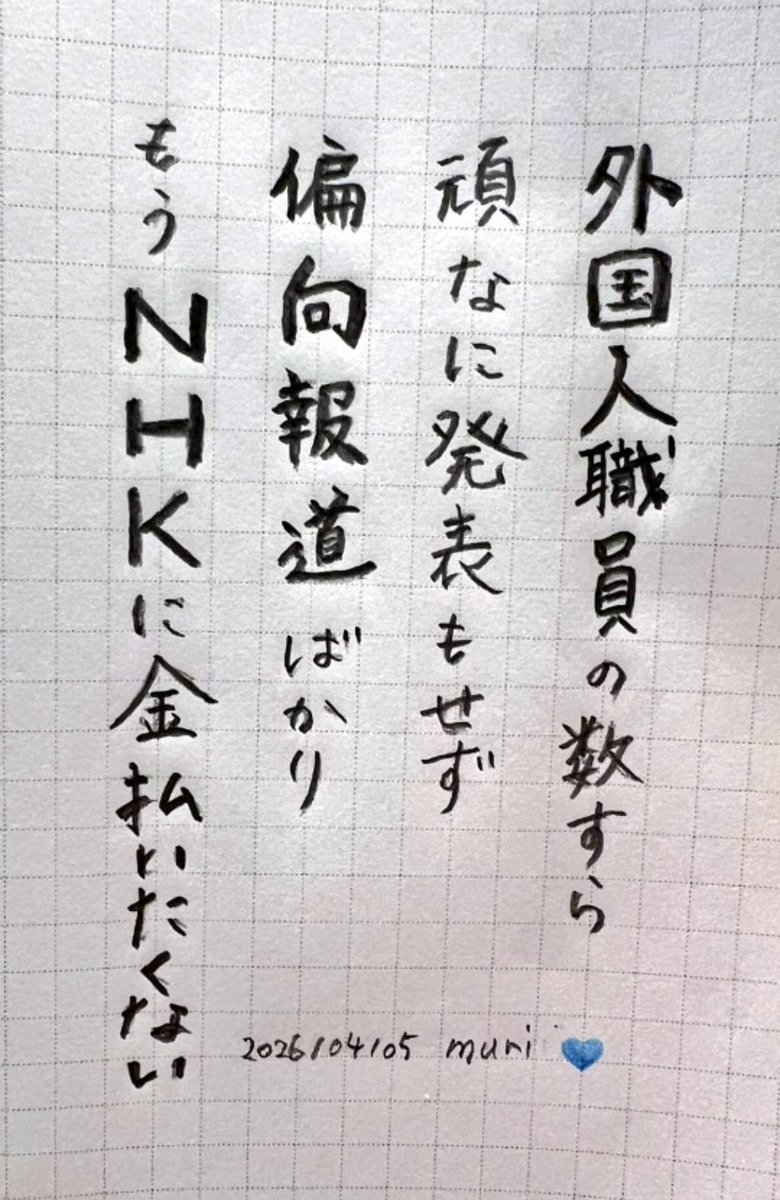 外国人職員の数すら
頑なに発表もせず
偏向報道ばかり
もうNHKに金払いたくない
2026/04/05 muri